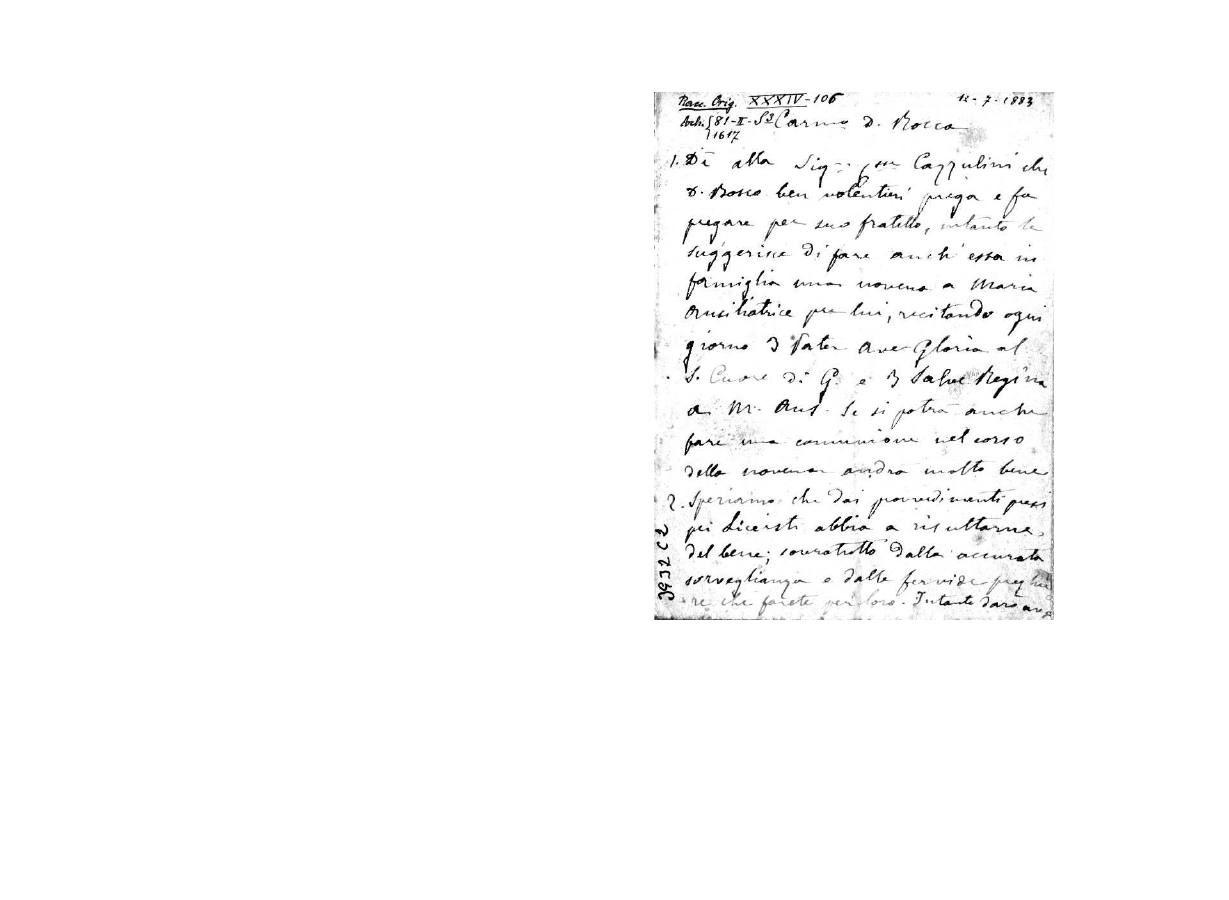 Racc. Orig. XXXIV-106 12-7-1883
Arch. 81-II-S3 Carmo d. Rocca
1617
1. Dì alla Sig.ra Cazzulini che
D. Bosco ben volentieri prega e fa
pregare per suo fratello, intanto le
suggerisce di fare anch'essa in
famiglia una novena a Maria
Ausiliatrice per lui, recitando ogni
giorno 3 Pater Ave Gloria al
S. Cuore di G. e 3 Salve Regina
a M. Aus. Se si potrà anche
fare una comunione nel corso
della novena andrà molto bene
2. Speriamo che dai provvedimenti presi
pei Liceisti abbia a risultarne
del bene; sovratutto dalla accurata
sorveglianza e dalle fervide preghie
re che farete per loro. Intanto darò
3952C2